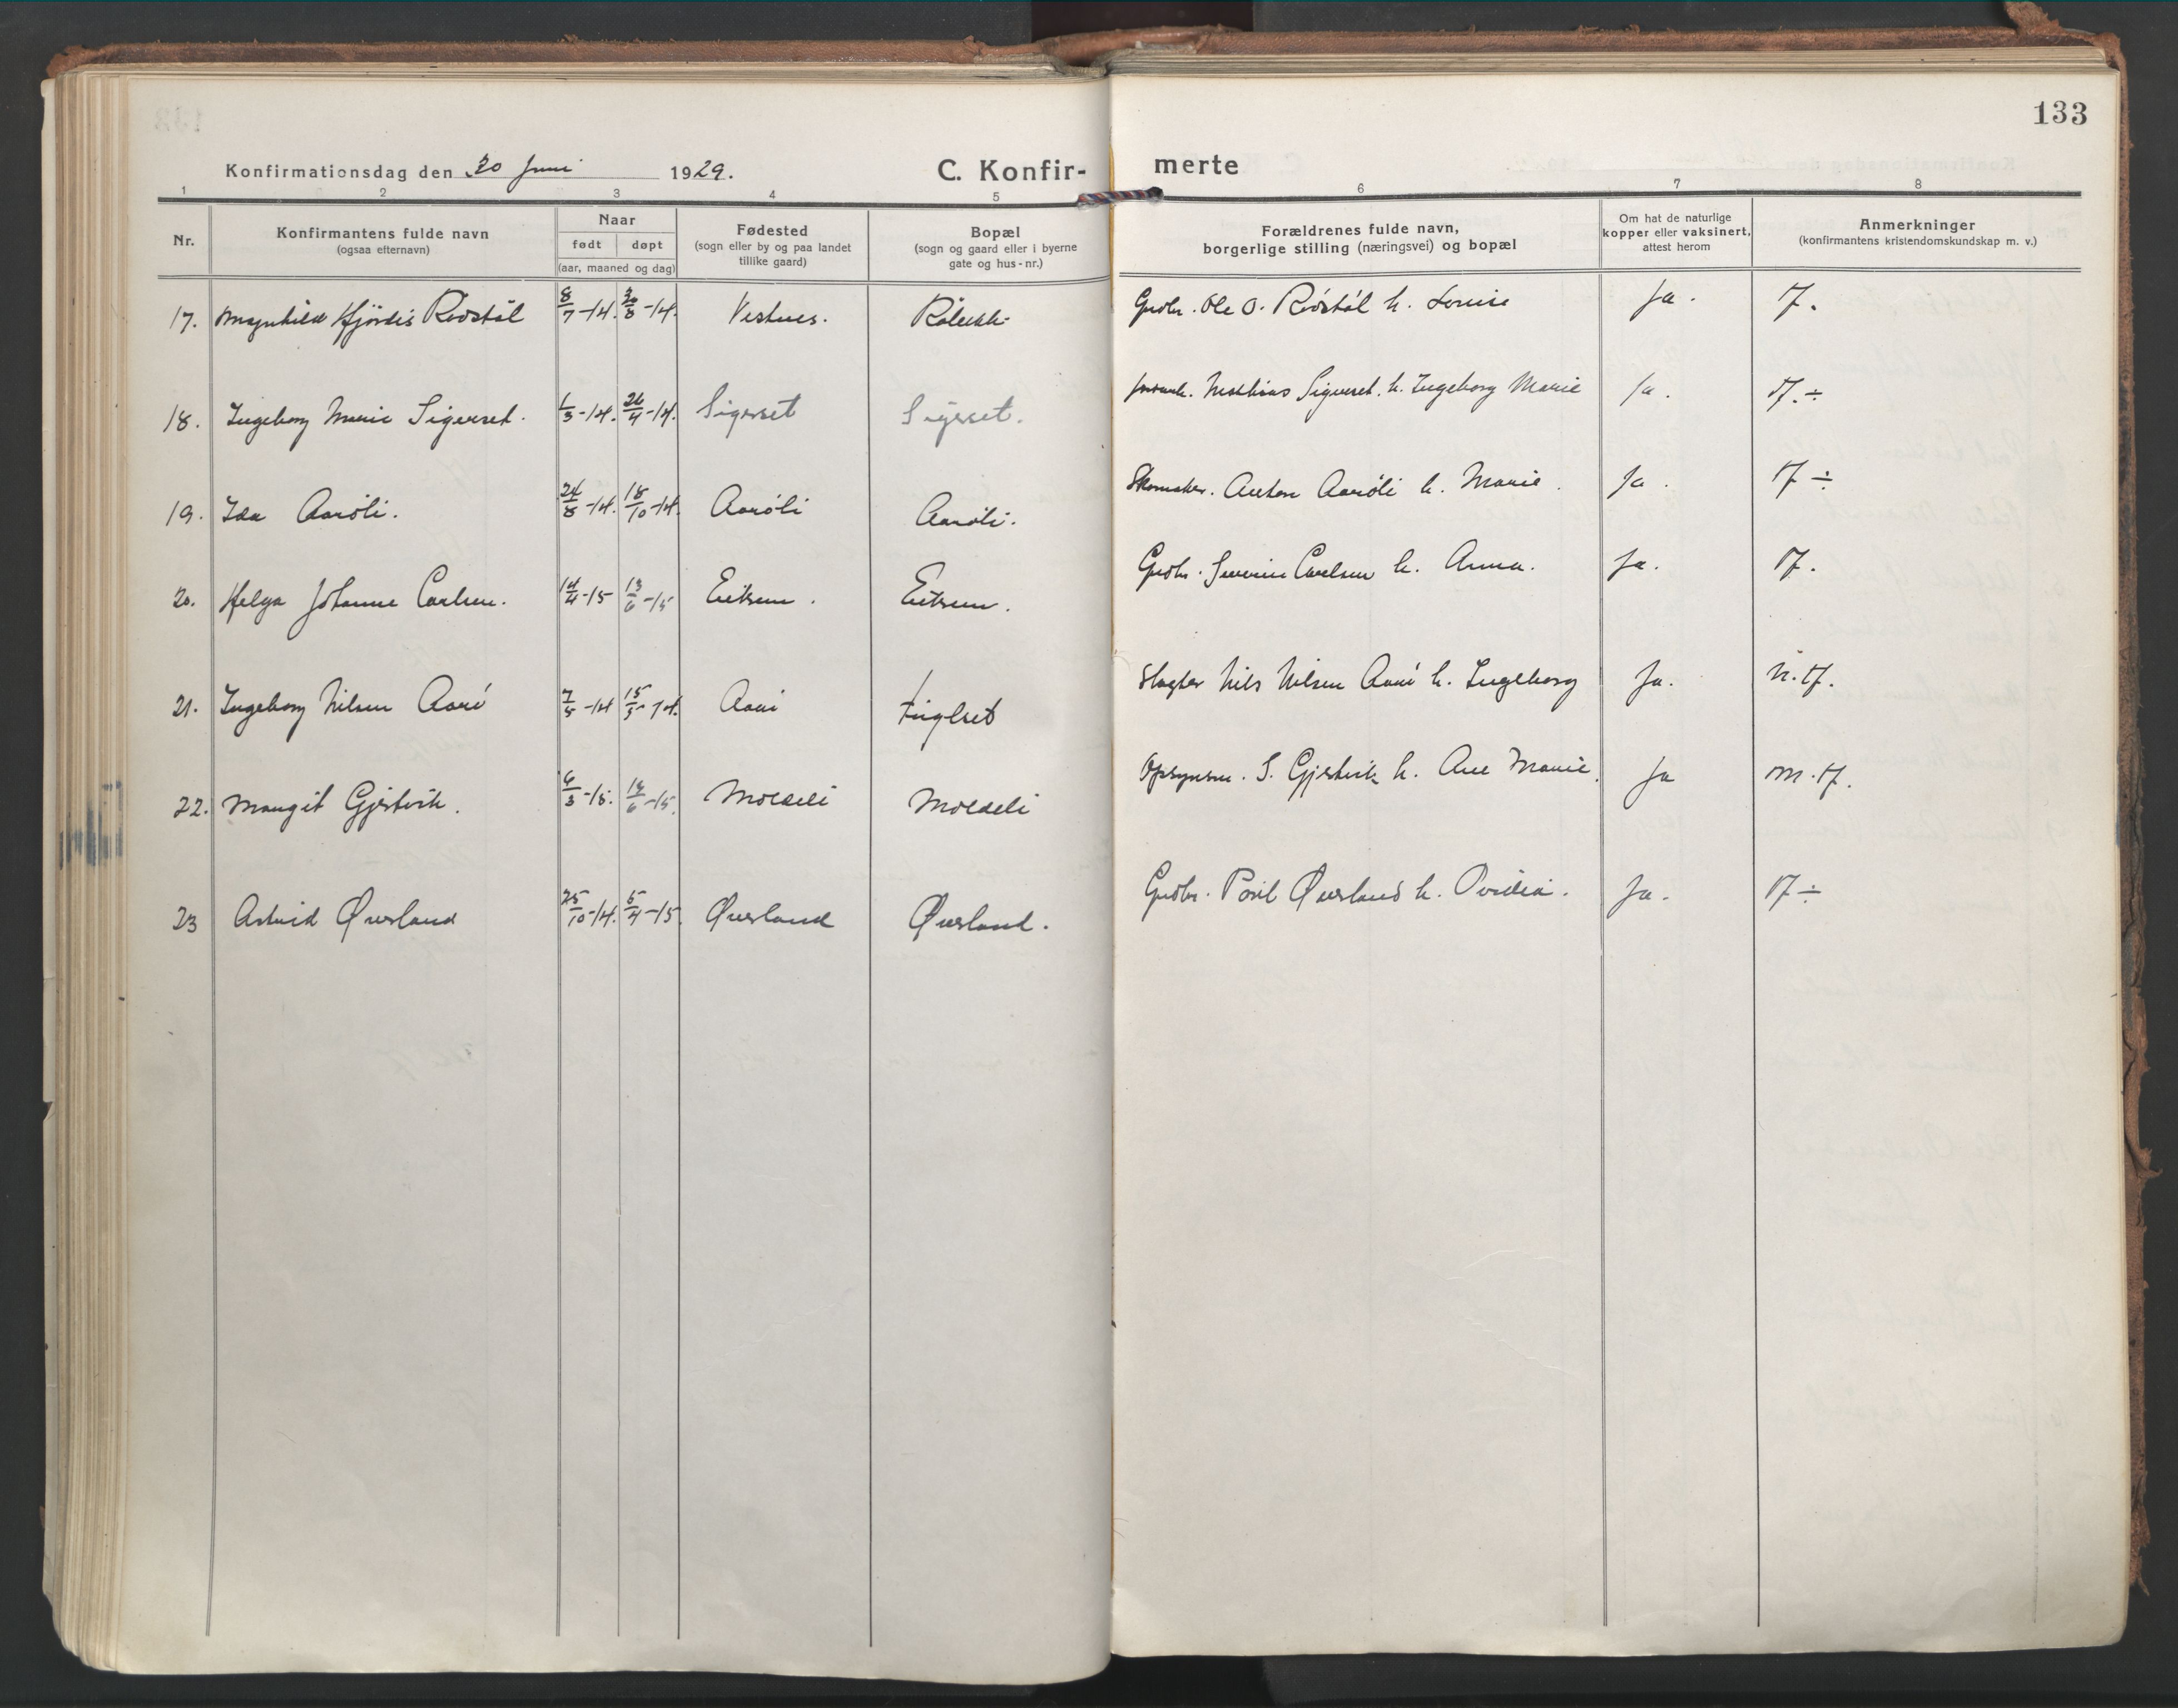 133
Konfirmationsdag den 30 Juni 1929.
C. Konfirmerte
1 2 3 4 5 6 7 8
Nr.
Konfirmantens fulde navn
(ogsaa efternavn)
Naar
født døpt
(aar, maaned og dag)
Fødested
(sogn eller by og paa landet
tillike gaard)
Bopæl
(sogn og gaard eller i byerne
gate og hus-nr.)
Forældrenes fulde navn,
borgerlige stilling (næringsvei) og bopæl
Om hat de naturlige
kopper eller vaksinert,
attest herom
Anmerkninger
(konfirmantens kristendomskundskap m. v.)
17. Magnhild Hjördis Rödstål 8/7-14. 30/8-14. Vestnes. Grdbr. Ole O. Rödstål h. Louise Ja. tf.
18. Ingeborg Marie Sigerset. 1/3-14. 26/4-14. Sigerset Sigerset. Mathias Sigerset. h. Ingeborg Marie Ja. tf. ÷
19. Ida Aaröli. 24/8-14. 18/10-14. Aaröli Aaröli. Skomaker. Anton Aaröli h. Marie. Ja. tf ÷
20. Helga Johanne Carlsen. 14/4-15 13/6-15 Eikrem. Eikrem. Grdbr. Severin Carlsen h. Anna. Ja. tf.
21. Ingeborg Nilsen Aarö 7/5-14 15/5-14. Aarö Fuglset Slagter Nils Nilsen Aarö h. Ingeborg Ja. n. tf.
22. Margit Gjertvik. 6/3-15. 13/6-15. Moldeli Moldeli Opsynsm. S. Gjertvik h. Ane Marie. Ja m. tf.
23 Astrid Øverland 25/10-14. 5/4-15. Øverland Øverland. Grdbr. Øverland h. Ovidia. Ja. tf ÷